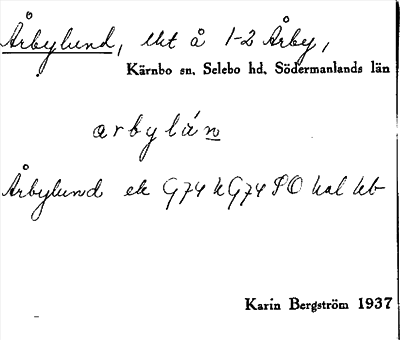 Årbylund, lht å 1-2 Årby,
Kärnbo sn. Selebo hd. Södermanlands län
arbylán
Årbylund ek G74 h G74 SO hal hb
Karin Bergström 1937